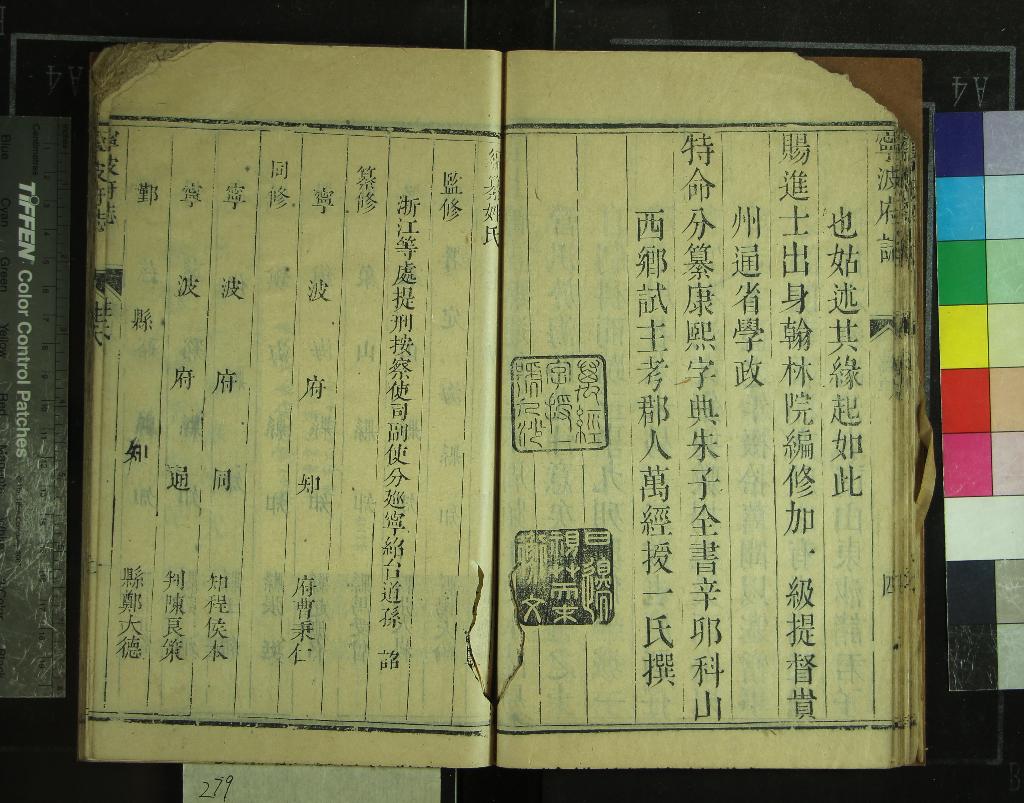 寧波府志
四
也姑述其緣起如此
賜進士出身翰林院編修加一級提督貴
州通省學政
特命分纂康熙字典朱子全書辛卯科山
西鄉試主考郡人萬經授一氏撰
萬經
字授一
編纂姓氏
監修
浙江等處提刑按察使司副使分廵寧紹台道孫 詔
纂修
寧波府知府曹秉仁
同修
寧波府同知程侯本
寧波府通判陳良策
鄞縣知縣鄭大德
寧波府志
姓氏
279
A4
A4
TIFFEN Color Control Patches
Centimetres
Blue
Cyan
Green
Yellow
Red